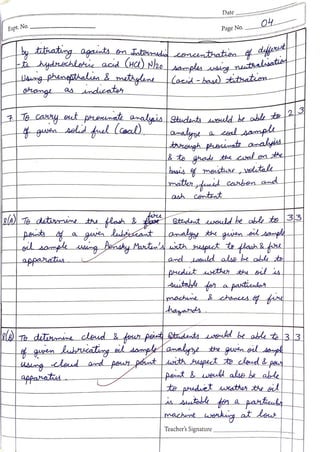 Date
Expt. No.
Page No. 04
by titrating againts an Intermedia concentration of different
-te hydrochloric acid (HCl) N/20 samples using neutralisation
Using phenopthalien & methylene (acid-base) titration.
orange as indicator
7. To carry out proximate analysis Students would be able to 2 3
of given solid fuel (coal). analyze a coal sample
through proximate analysis
& to grade the coal on the
basis of moisture, volitale
matter, fixed carbon and
ash content
8(a) To determine the flash & fire Student would be able to 3 3
points of a given lubricant analyse the given oil sample
oil sample using Pensky Marten's with respect to flash & fire
apparatus. and would also be able to
predict wether the oil is
suitable for a particular
machine & chances of fire
hazards.
8(b) To determine cloud & pour point Students would be able to 3 3
of given lubricating oil sample analyze the given oil sampl
using cloud and pour point with respect to cloud & pour
apparatus. point & would also be able
to predict weather the oil
is suitable for a particular
machine working at low
Teacher's Signature